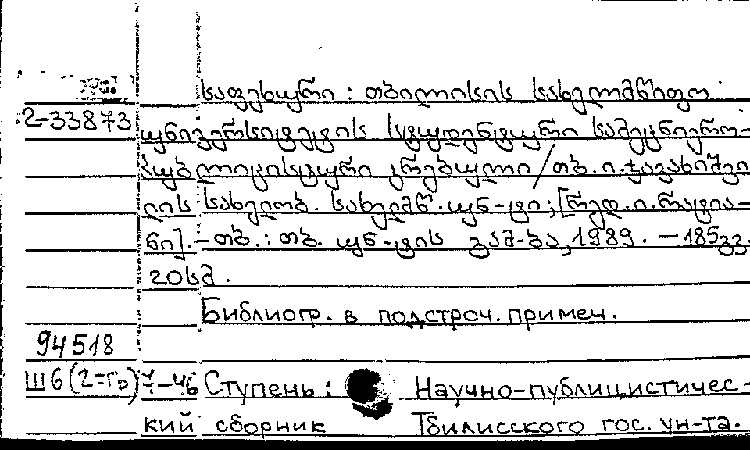 საფეხური : თბილისის სახელმწიფო
2-33873 უნივერსიტეტის სტუდენტური სამეცნიერო-
პუბლიცისტური კრებული / თბ. ი. ჯავახიშვი
ლის სახელობ. სახელმწ. უნ-ტი; [რედ. ი. რატია-
ნი]. – თბ. : თბ. უნ-ტის გამ-ბა, 1989. – 185გვ.
20სმ.
Библиогр. в подстроч. примеч.
94518
Ш6(2-Гр)7-46 Ступень : Научно-публицистичес-
кий сборник Тбилисского гос. ун-та.